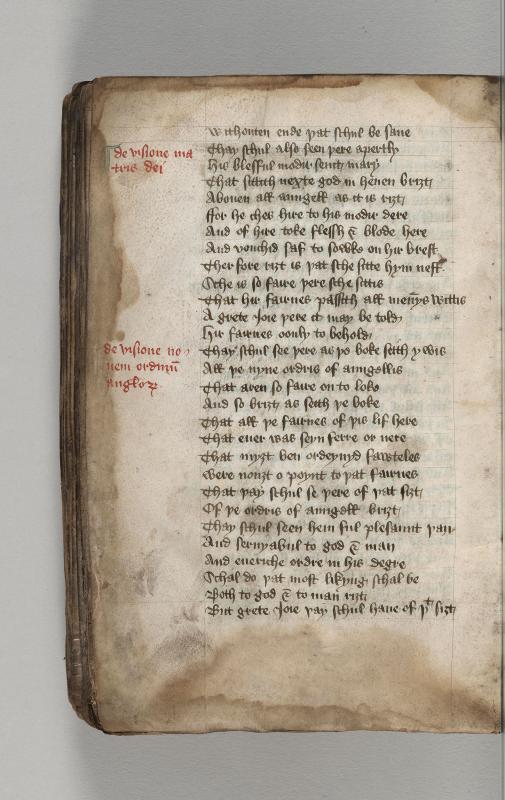 Withouten ende þat schul be saue
de visione ma
tris dei
Thay schul also seen þere aperthy
His blesful modir seint mary
That sittith nexte god in heuen briȝt
Abouen all aungell as it is riȝt
ffor he ches hire to his modir dere
And of hire toke flessh & blode here
And vouchid saf to sowke on hir brest
Therfore riȝt is þat sche sitte hym nest
Sche is so faire þere sche sittis
That hir fairnes passith all mennys wittis
A grete Ioie þere it may be told
Hir fairnes oonly to behold
de visione no
uem ordinum
angloꝝ
Thay schul see þere as þo boke seith ywis
All þe nyne ordris of aungellis
That aren so faire on to loke
And so briȝt as seith þe boke
That all þe fairnes of þis lif here
That euer was seyn ferre or nere
That myȝt ben ordeynyd fawteles
Were nouȝt o poynt to þat fairnes
That þay schul se þere of þat siȝt
Of þe ordris of aungell briȝt
Thay schul seen hem ful plesaunt þan
And seruyabul to god & man
And eueriche ordre in his degre
Schal do þat most likyng schal be
Both to god & to man riȝt
But grete Ioie þay schul haue of þͭ siȝt